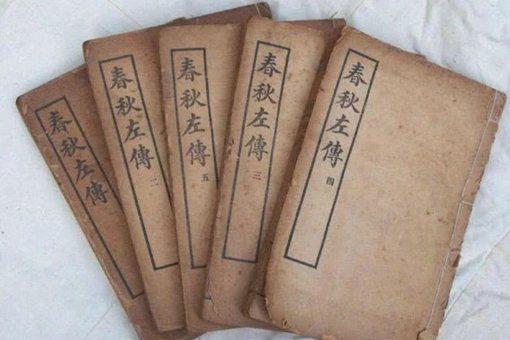 春秋左傳
春秋左傳 二
春秋左傳 五
春秋左傳 三
春秋左傳 四